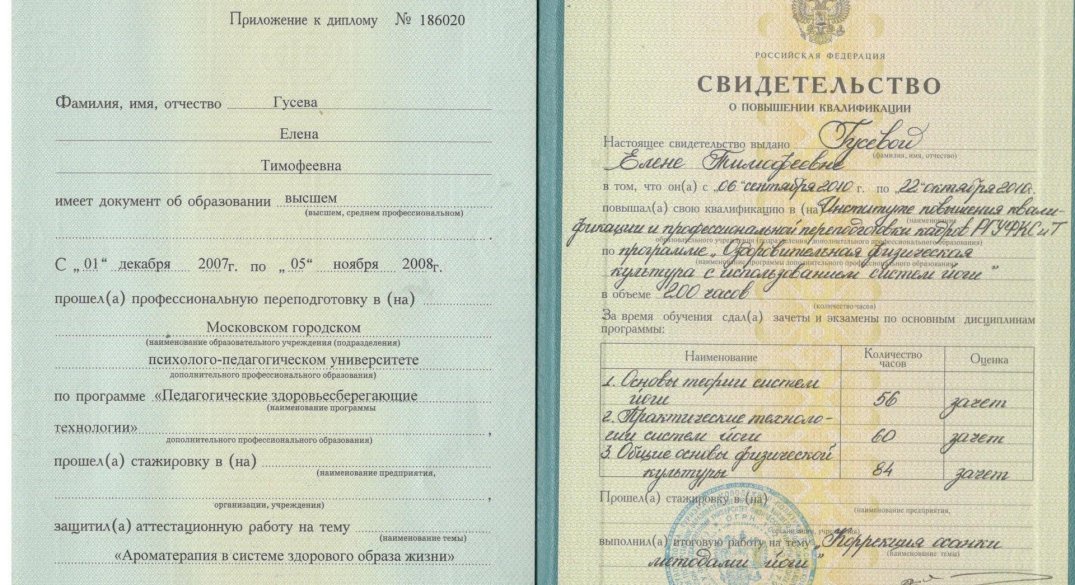 Приложение к диплому № 186020
Фамилия, имя, отчество Гусева
Елена
Тимофеевна
имеет документ об образовании высшем
(высшем, среднем профессиональном)
С „01“ декабря 2007г. по „05“ ноября 2008г.
прошел(а) профессиональную переподготовку в (на)
Московском городском
(наименование образовательного учреждения (подразделения)
психолого-педагогическом университете
дополнительного профессионального образования)
по программе «Педагогические здоровьесберегающие
(наименование программы
технологии»
дополнительного профессионального образования)
прошел(а) стажировку в (на)
(наименование предприятия,
организации, учреждения)
защитил(а) аттестационную работу на тему
(наименование темы)
«Ароматерапия в системе здорового образа жизни»
РОССИЙСКАЯ ФЕДЕРАЦИЯ
СВИДЕТЕЛЬСТВО
О ПОВЫШЕНИИ КВАЛИФИКАЦИИ
Настоящее свидетельство выдано Гусевой
(фамилия, имя, отчество)
Елене Тимофеевне
в том, что он(а) с „06“ сентября 2010г. по „22“ октября 2010г.
повышал(а) свою квалификацию в (на) Институте повышения квали-
(наименование
фикации и профессиональной переподготовки кадров РГУФКСиТ
образовательного учреждения (подразделения) дополнительного профессионального образования)
по программе „Оздоровительная физическая
(наименование программы дополнительного профессионального образования)
культура с использованием систем йоги"
в объеме 200 часов
(количество часов)
За время обучения сдал(а) зачеты и экзамены по основным дисциплинам
программы:
Наименование Количество часов Оценка
1. Основы теории систем
йоги 56 зачет
2. Практические техноло-
гии систем йоги 60 зачет
3. Общие основы физической
культуры 84 зачет
Прошел(а) стажировку в (на)
(наименование предприятия,
организации, учреждения)
выполнил(а) итоговую работу на тему „Коррекция осанки
(наименование темы)
методами йоги"